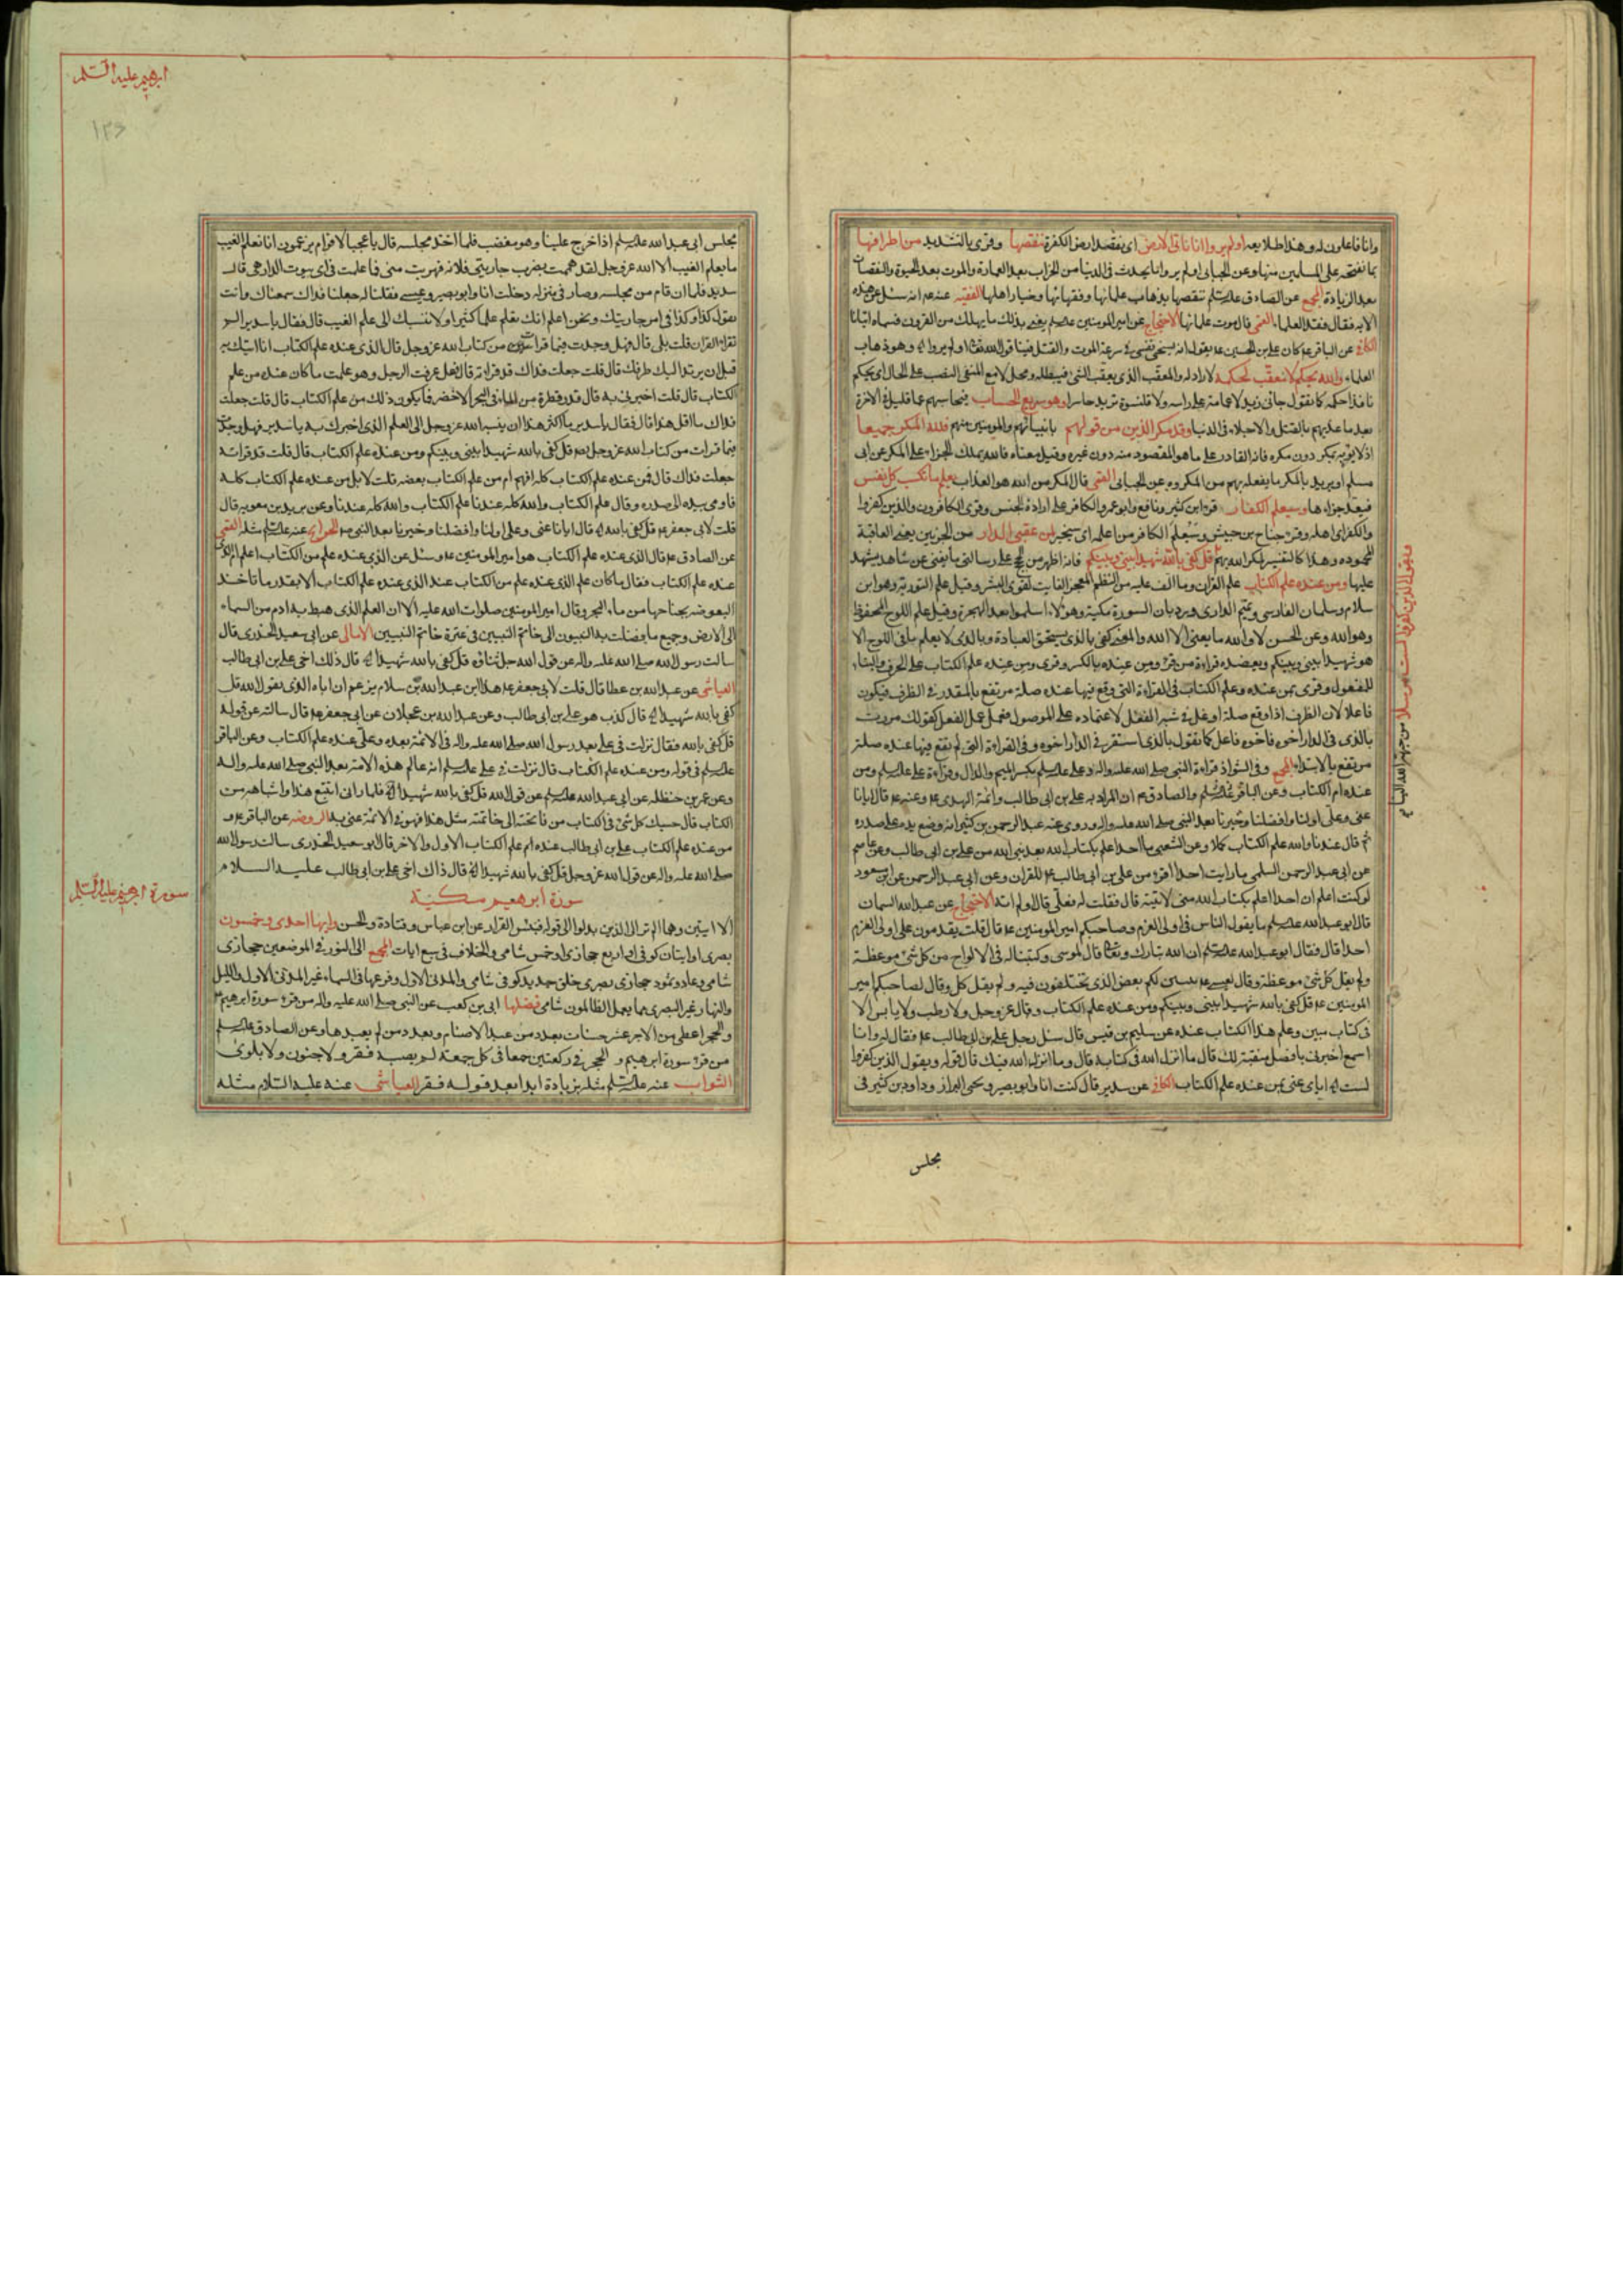 وانا فاعلون له وهذا طلايعه اولم يروا انا ناتى الارض اى نقصد ارض الكفرة ننقصها وقرى بالتشديد من اطرافها
بما نفتحه على المسلمين منها وعن الجبائى اولم يروا ما يحدث فى الدنيا من الخراب بعد العمارة والموت بعد الحيوة والنقصان
بعد الزيادة المجمع عن الصادق عليه السلم ننقصها بذهاب علمائها وفقهائها وخيار اهلها الفقيه عنه عم انه سئل عن هذه
الاية فقال فقد العلماء القمى قال موت علمائها الاحتجاج عن امير المومنين عليه السلم يعنى بذلك ما يهلك من القرون فسماه اتيانا
الكافى عن الباقر عم كان على بن الحسين عم يقول انه يسخى نفسى فى سرعة الموت والقتل فينا قول الله تعالى اولم يروا اه وهو ذهاب
العلماء والله يحكم لا معقب لحكمه لا راد له والمعقب الذى يعقب الشئ فيبطله ومحل لا مع المنفى النصب على الحال اى يحكم
نافذا حكمه كما تقول جائى زيد لا عمامة على راسه ولا قلنسوة تريد حاسرا وهو سريع الحساب يحاسبهم عما قليل فى الاخرة
بعد ما عذبهم بالقتل والاجلاء فى الدنيا وقد مكر الذين من قبلهم بانبيائهم والمومنين منهم فلله المكر جميعا
اذ لا يؤبه بمكر دون مكره فانه القادر على ما هو المقصود منه دون غيره وقيل معناه فالله يملك الجزاء على المكر عن ابى
مسلم او يريد بالمكر ما يفعله بهم من المكروه عن الجبائى القمى قال المكر من الله هو العذاب يعلم ما تكسب كل نفس
فيعد جزاءها وسيعلم الكفار قرء ابن كثير ونافع وابو عمرو الكافر على ارادة الجنس وقرى الكافرون والذين كفروا
والكفر اى اهله وقرء جناح بن حبيش وسيعلم الكافر من اعلمه اى سيخبر لمن عقبى الدار من الحزبين يعنى العاقبة
المحمودة وهذا كالتفسير لمكر الله بهم قل كفى بالله شهيدا بينى وبينكم فانه اظهر من الحجج على رسالتى ما يغنى عن شاهد يشهد
عليها ومن عنده علم الكتاب علم القران وما الف عليه من النظم المعجز الفايت لقوى البشر وقيل علم التورية وهو ابن
سلام وسلمان الفارسى وتميم الدارى ويرده بان السورة مكية وهولاء اسلموا بعد الهجرة وقيل علم اللوح المحفوظ
وهو الله وعن الحسن لا والله ما يعنى الا الله والمعنى كفى بالذى يستحق العبادة وبالذى لا يعلم ما فى اللوح الا
هو شهيدا بينى وبينكم ويعضده قراءة من قرء ومن عنده بالكسر وقرى ومن عنده علم الكتاب على الحرف والبناء
للمفعول وقرى بمن عنده وعلم الكتاب فى القراءة التى وقع فيها عنده صلة مرتفع بالمقدر فى الظرف فيكون
فاعلا لان الظرف اذا وقع صلة اوغل فى شبه الفعل لاعتماده على الموصول فعمل عمل الفعل كقولك مررت
بالذى فى الدار اخوه فاخوه فاعل كما تقول بالذى استقر فى الدار اخوه وفى القراءة التى لم يقع فيها عنده صلة
مرتفع بالابتداء المجمع وفى الشواذ قراءة النبى صلى الله عليه واله وعلى عليه السلم بكسر الميم والدال وقراءة على عليه السلم ومن
عنده ام الكتاب وعن الباقر عليه السلم والصادق عم ان المراد به على بن ابى طالب وائمة الهدى عم وعنه عم قال ايانا
عنى وعلى اولنا وافضلنا وخيرنا بعد النبى صلى الله عليه واله وروى عنه عبد الرحمن بن كثير انه وضع يده على صدره
ثم قال عندنا والله علم الكتاب كملا وعن الشعبى ما احد اعلم بكتاب الله بعد نبى الله من على بن ابى طالب وعن عاصم
عن ابى عبد الرحمن السلمى ما رايت احدا اقرء من على بن ابى طالب عم للقران وعن ابى عبد الرحمن عن ابن مسعود
لو كنت اعلم ان احدا اعلم بكتاب الله منى لاتيته قال فقلت له فعلى قال اولم اته الاحتجاج عن عبد الله السمان
قال ابو عبد الله عليه السلم ما يقول الناس فى اولى العزم وصاحبكم امير المومنين عم قال قلت يقدمون على اولى العزم
احدا قال فقال ابو عبد الله عليه السلم ان الله تبارك وتعالى قال لموسى وكتبنا له فى الالواح من كل شئ موعظة
ولم يقل كل شئ موعظة وقال لعيسى عم ليبين لكم بعض الذى تختلفون فيه ولم يقل كل وقال لصاحبكم امير
المومنين عم قل كفى بالله شهيدا بينى وبينكم ومن عنده علم الكتاب وقال عز وجل ولا رطب ولا يابس الا
فى كتاب مبين وعلم هذا الكتاب عنده عن سليم بن قيس قال سئل رجل على بن ابى طالب عم فقال له وانا
اسمع اخبرنى بافضل منقبة لك قال ما انزل الله فى كتابه قال وما انزل الله فيك قال قوله ويقول الذين كفروا
لست اه اياى عنى بمن عنده علم الكتاب الكافى عن سدير قال كنت انا وابو بصير ويحيى البزاز وداود بن كثير فى
ويقول الذين كفروا لست مرسلا من جهة الله اليهم
مجلس
ابرهيم عليه السلم
١٣٦
مجلس ابى عبد الله عليه السلم اذا خرج علينا وهو مغضب فلما اخذ مجلسه قال يا عجبا لاقوام يزعمون انا نعلم الغيب
ما يعلم الغيب الا الله عز وجل لقد هممت بضرب جاريتى فلانة فهربت منى فما علمت فى اى بيوت الدار هى قال
سدير فلما ان قام من مجلسه وصار فى منزله دخلت انا وابو بصير وميسر فقلنا له جعلنا فداك سمعناك وانت
تقول كذا وكذا فى امر جاريتك ونحن اعلم انك تعلم علما كثيرا ولا ننسبك الى علم الغيب قال فقال يا سدير الم
تقرا القران قلت بلى قال فهل وجدت فيما قرات من كتاب الله عز وجل قال الذى عنده علم الكتاب انا اتيك به
قبل ان يرتد اليك طرفك قال قلت جعلت فداك قد قراته قال فهل عرفت الرجل وهو علمت ما كان عنده من علم
الكتاب قال قلت اخبرنى به قال قدر قطرة من الماء فى البحر الاخضر فما يكون ذلك من علم الكتاب قال قلت جعلت
فداك ما اقل هذا قال فقال يا سدير ما اكثر هذا ان ينسبه الله عز وجل الى العلم الذى اخبرك به يا سدير فهل وجدت
فيما قرات من كتاب الله عز وجل ايضا قل كفى بالله شهيدا بينى وبينكم ومن عنده علم الكتاب قال قلت قد قراته
جعلت فداك قال فمن عنده علم الكتاب كله افهم ام من علم الكتاب بعضه قلت لا بل من عنده علم الكتاب كله
فاومى بيده الى صدره وقال علم الكتاب والله كله عندنا علم الكتاب والله كله عندنا وعن بريد بن معوية قال
قلت لابى جعفر عم قل كفى بالله اه قال ايانا عنى وعلى اولنا وافضلنا وخيرنا بعد النبى صم الخرايج عنه عليه السلم مثله القمى
عن الصادق عم قال الذى عنده علم الكتاب هو امير المومنين عم وسئل عن الذى عنده علم من الكتاب اعلم ام الذى
عنده علم الكتاب فقال ما كان علم الذى عنده علم من الكتاب عند الذى عنده علم الكتاب الا بقدر ما تاخذ
البعوضة بجناحها من ماء البحر وقال امير المومنين صلوات الله عليه الا ان العلم الذى هبط به ادم من السماء
الى الارض وجميع ما فضلت به النبيون الى خاتم النبيين فى عترة خاتم النبيين الامالى عن ابى سعيد الخدرى قال
سالت رسول الله صلى الله عليه واله عن قول الله جل ثناؤه قل كفى بالله شهيدا اه قال ذلك اخى على بن ابى طالب
العياشى عن عبد الله بن عطا قال قلت لابى جعفر عم هذا ابن عبد الله بن سلام يزعم ان اباه الذى يقول الله قل
كفى بالله شهيدا اه قال كذب هو على بن ابى طالب وعن عبد الله بن عجلان عن ابى جعفر عم قال سالته عن قوله
قل كفى بالله فقال نزلت فى على بعد رسول الله صلى الله عليه واله فى الائمة بعده وعلى عنده علم الكتاب وعن الباقر
عليه السلم فى قوله ومن عنده علم الكتاب قال نزلت فى على عليه السلم انه عالم هذه الامة بعد النبى صلى الله عليه واله
وعن عمر بن حنظله عن ابى عبد الله عليه السلم عن قول الله قل كفى بالله شهيدا اه فلما رانى اتتبع هذا واشباهه من
الكتاب قال حسبك كل شئ فى الكتاب من فاتحته الى خاتمته مثل هذا فهو فى الائمة عنى به الروضه عن الباقر عم و
من عنده علم الكتاب على بن ابى طالب عنده ام علم الكتاب الاول والاخر قال ابو سعيد الخدرى سالت رسول الله
صلى الله عليه واله عن قول الله عز وجل قل كفى بالله شهيدا اه قال ذاك اخى على بن ابى طالب عليه السلام
سورة ابرهيم عليه السلم
سورة ابرهيم مكية
الا ايتين وهما الم تر الى الذين بدلوا الى قوله فبئس القرار عن ابن عباس وقتادة والحسن وايها احدى وخمسون
بصرى او ايتان كوفى او اربع حجازى او خمس شامى والخلاف فى سبع ايات المجمع الى النور فى الموضعين حجازى
شامى وعاد وثمود حجازى بصرى خلق جديد كوفى شامى والمدنى الاول وفرعها فى السماء غير المدنى الاول والليل
والنهار غير البصرى عما يعمل الظالمون شامى فضلها ابى بن كعب عن النبى صلى الله عليه واله من قرء سورة ابرهيم
والحجر اعطى من الاجر عشر حسنات بعدد من عبد الاصنام وبعدد من لم يعبدها وعن الصادق عليه السلم
من قرء سورة ابرهيم و الحجر فى ركعتين جمعا فى كل جمعة لم يصبه فقر ولا جنون ولا بلوى
الثواب عنه عليه السلم مثله بزيادة ابدا بعد قوله فقر العياشى عنه عليه السلام مثله